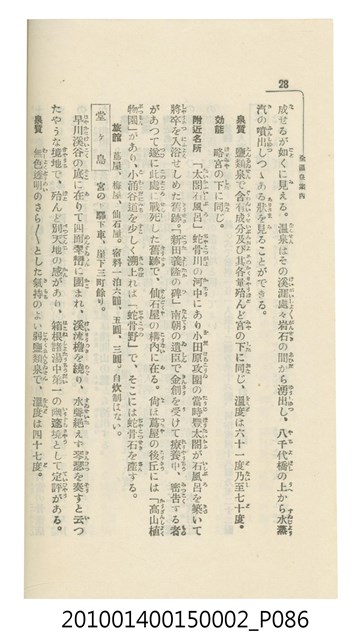 28
全國温泉案內
成せるが如くに見える。溫泉はその溪涯處々岩石の間から湧出し、八千代橋の上から水蒸
汽の噴出しつゝある狀を見ることができる。
泉質　鹽類泉で含有成分及び其各量殆んど宮の下に同じ、溫度は六十一度乃至七十度。
効能　略宮の下に同じ。
附近名所　「太閤石風呂」蛇骨川の河中にあり小田原攻圍の當時豐太閤が石風呂を築いて
將卒を入浴せしめた舊跡。「新田義隆の碑」南朝の遺臣で金創を受けて療養中、密告する者
があつて遂に此處に戰死した舊跡で、仙石屋の構內に在る。尙ほ蔦屋の後丘には「高山植
物園」があり、小涌谷道を少しく溯上れば「蛇骨野」で、そこには蛇骨石を產する。
旅館　蔦屋、梅屋、仙石屋。宿料一泊六圓、五圓、三圓。自炊制はない。
堂ヶ島　宮の下驛下車、崖下三町餘り。
早川溪谷の底に在りて四面翠巒に圍まれ、溪流檐を繞り、水聲絕えず琴瑟を奏すと云つ
たやうな境地で、殆んど別天地の感があり、箱根諸湯中第一の幽邃境として定評がある。
泉質　無色透明のさら〳〵とした氣持のよい弱鹽類泉で、溫度は四十七度。
201001400150002_P086